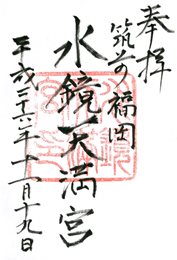 奉拝
筑前福岡
水鏡天満宮
平成二十六年十一月十九日